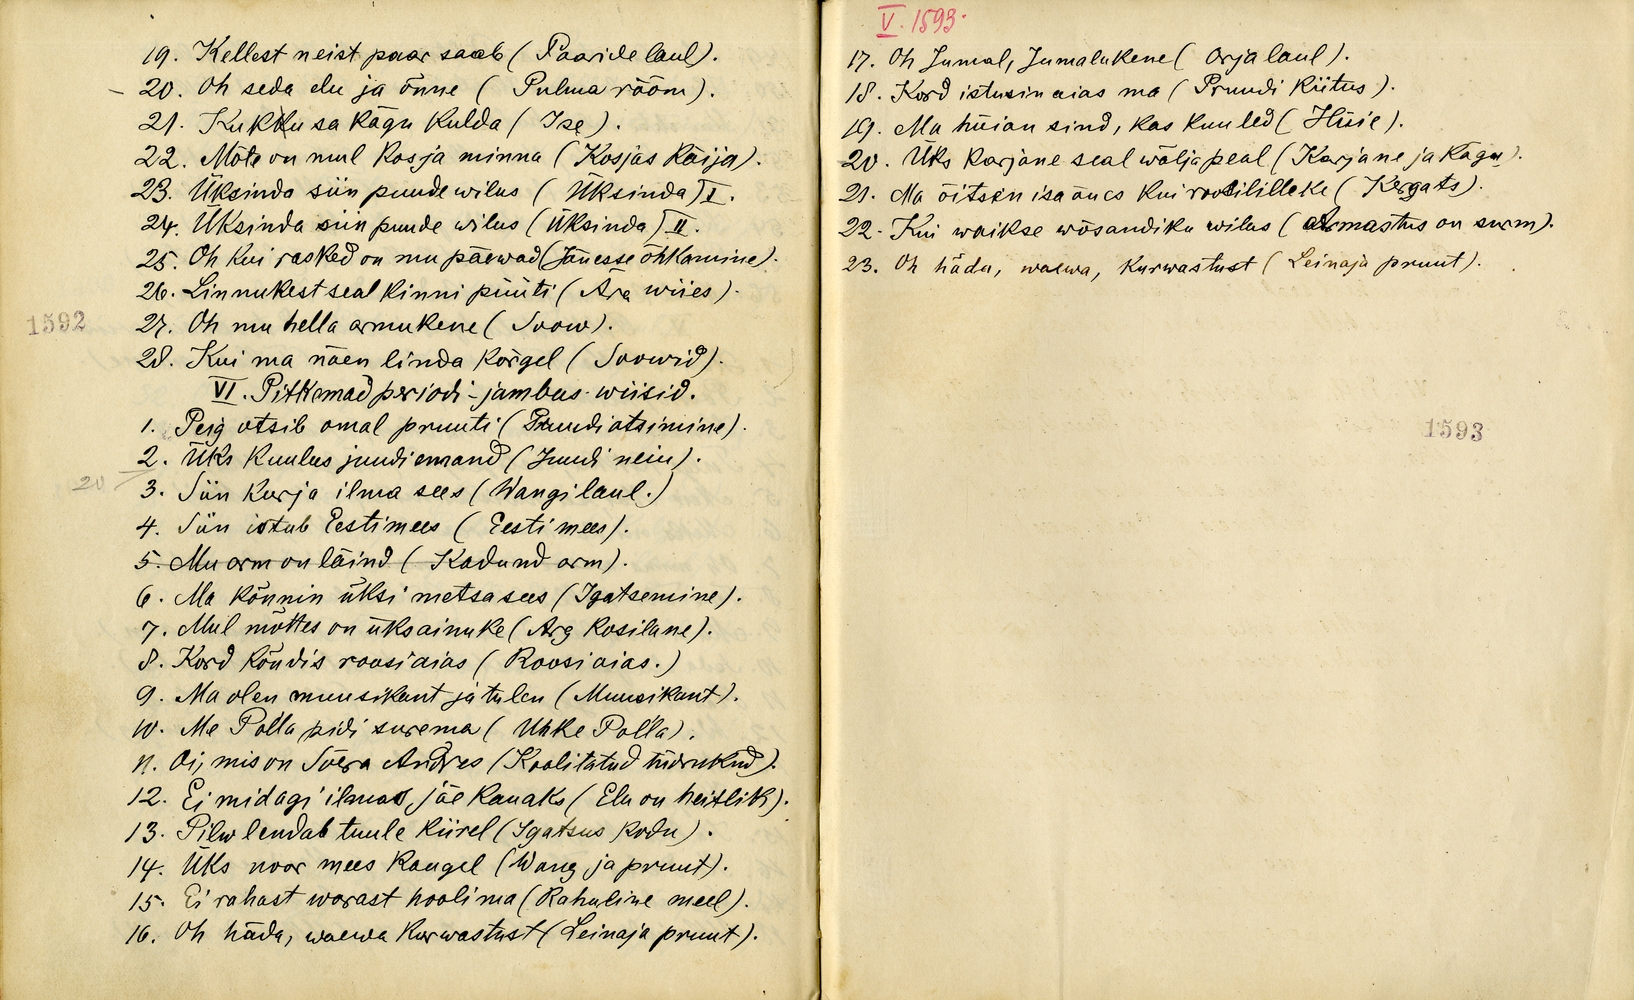 19. Kellest neist paar saab (Paaride laul).
20. Oh seda elu ja õnne (Pulma rõõm).
21. Kukku sa kägu kulda (Ise).
22. Mõte on mul kosja minna (Kosjas käija).
23. Üksinda siin puude wilus (Üksinda) I.
24. Üksinda siin puude wilus (Üksinda) II.
25. Oh kui rasked on mu päewad (Jänesse õhkamine).
26. Linnukest seal kinni püüti (Ära wiies).
1592
27. Oh mu hella armukene (Soow).
28. Kui ma näen linda kõrgel (Soowid).
VI. Pitkemad periodi-jambus-wiisid.
1. Peig otsib omal pruuti (Pruudi otsimine).
2. Üks kuulus juudi emand (Juudi neiu).
20
3. Siin kurja ilma sees (Wangi laul.)
4. Siin istub Eestimees (Eesti mees).
5. Mu arm on läind (Kadund arm).
6. Ma kõnnin üksi metsa sees (Igatsemine).
7. Mul mõttes on üks ainuke (Arg kosilane).
8. Kord kõndis roosiaias (Roosi aias.)
9. Ma olen muusikant ja tulen (Muusikant).
10. Me Polla pidi surema (Uhke Polla).
11. Oi, mis on Sõera Andres (Koolitatud tüdrukud).
12. Ei midagi ilmas jäe kauaks (Elu on heitlik).
13. Pilw lendab tuule kiirel (Igatsus kodu).
14. Üks noor mees kaugel (Wang ja pruut).
15. Ei rahast warast hooli ma (Rahuline meel).
16. Oh häda, waewa kurwastust (Leinaja pruut).
V. 1593.
17. Oh Jumal, Jumalukene (Orja laul).
18. Kord istusin aias ma (Pruudi kiitus).
19. Ma hüian sind, kas kuuled (Hüie).
20. Üks karjane seal wälja peal (Karjane ja kägu).
21. Ma õitsen isa õues kui roosililleke (Kergats).
22. Kui waikse wõsandiku wilus (Armastus on surm).
23. Oh häda, waewa, kurwastust (Leinaja pruut).
1593